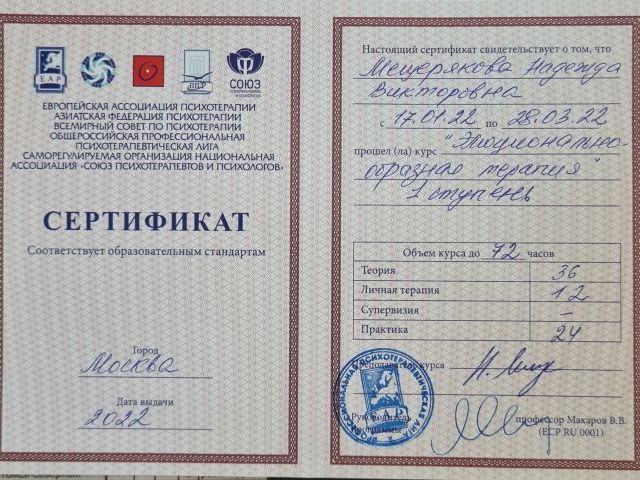 EAP
ППЛ
СОЮЗ
ЕВРОПЕЙСКАЯ АССОЦИАЦИЯ ПСИХОТЕРАПИИ
АЗИАТСКАЯ ФЕДЕРАЦИЯ ПСИХОТЕРАПИИ
ВСЕМИРНЫЙ СОВЕТ ПО ПСИХОТЕРАПИИ
ОБЩЕРОССИЙСКАЯ ПРОФЕССИОНАЛЬНАЯ
ПСИХОТЕРАПЕВТИЧЕСКАЯ ЛИГА
САМОРЕГУЛИРУЕМАЯ ОРГАНИЗАЦИЯ НАЦИОНАЛЬНАЯ
АССОЦИАЦИЯ «СОЮЗ ПСИХОТЕРАПЕВТОВ И ПСИХОЛОГОВ»
СЕРТИФИКАТ
Соответствует образовательным стандартам
Город
Москва
Дата выдачи
2022
Настоящий сертификат свидетельствует о том, что
Мещерякова Надежда
Викторовна
с 17.01.22 по 28.03.22
прошел (ла) курс "Эмоционально-
образная терапия"
1 ступень
Объем курса до 72 часов
Теория 36
Личная терапия 12
Супервизия –
Практика 24
Преподаватель курса
Руководитель
программы
профессор Макаров В.В.
(ECP RU 0001)
EAP